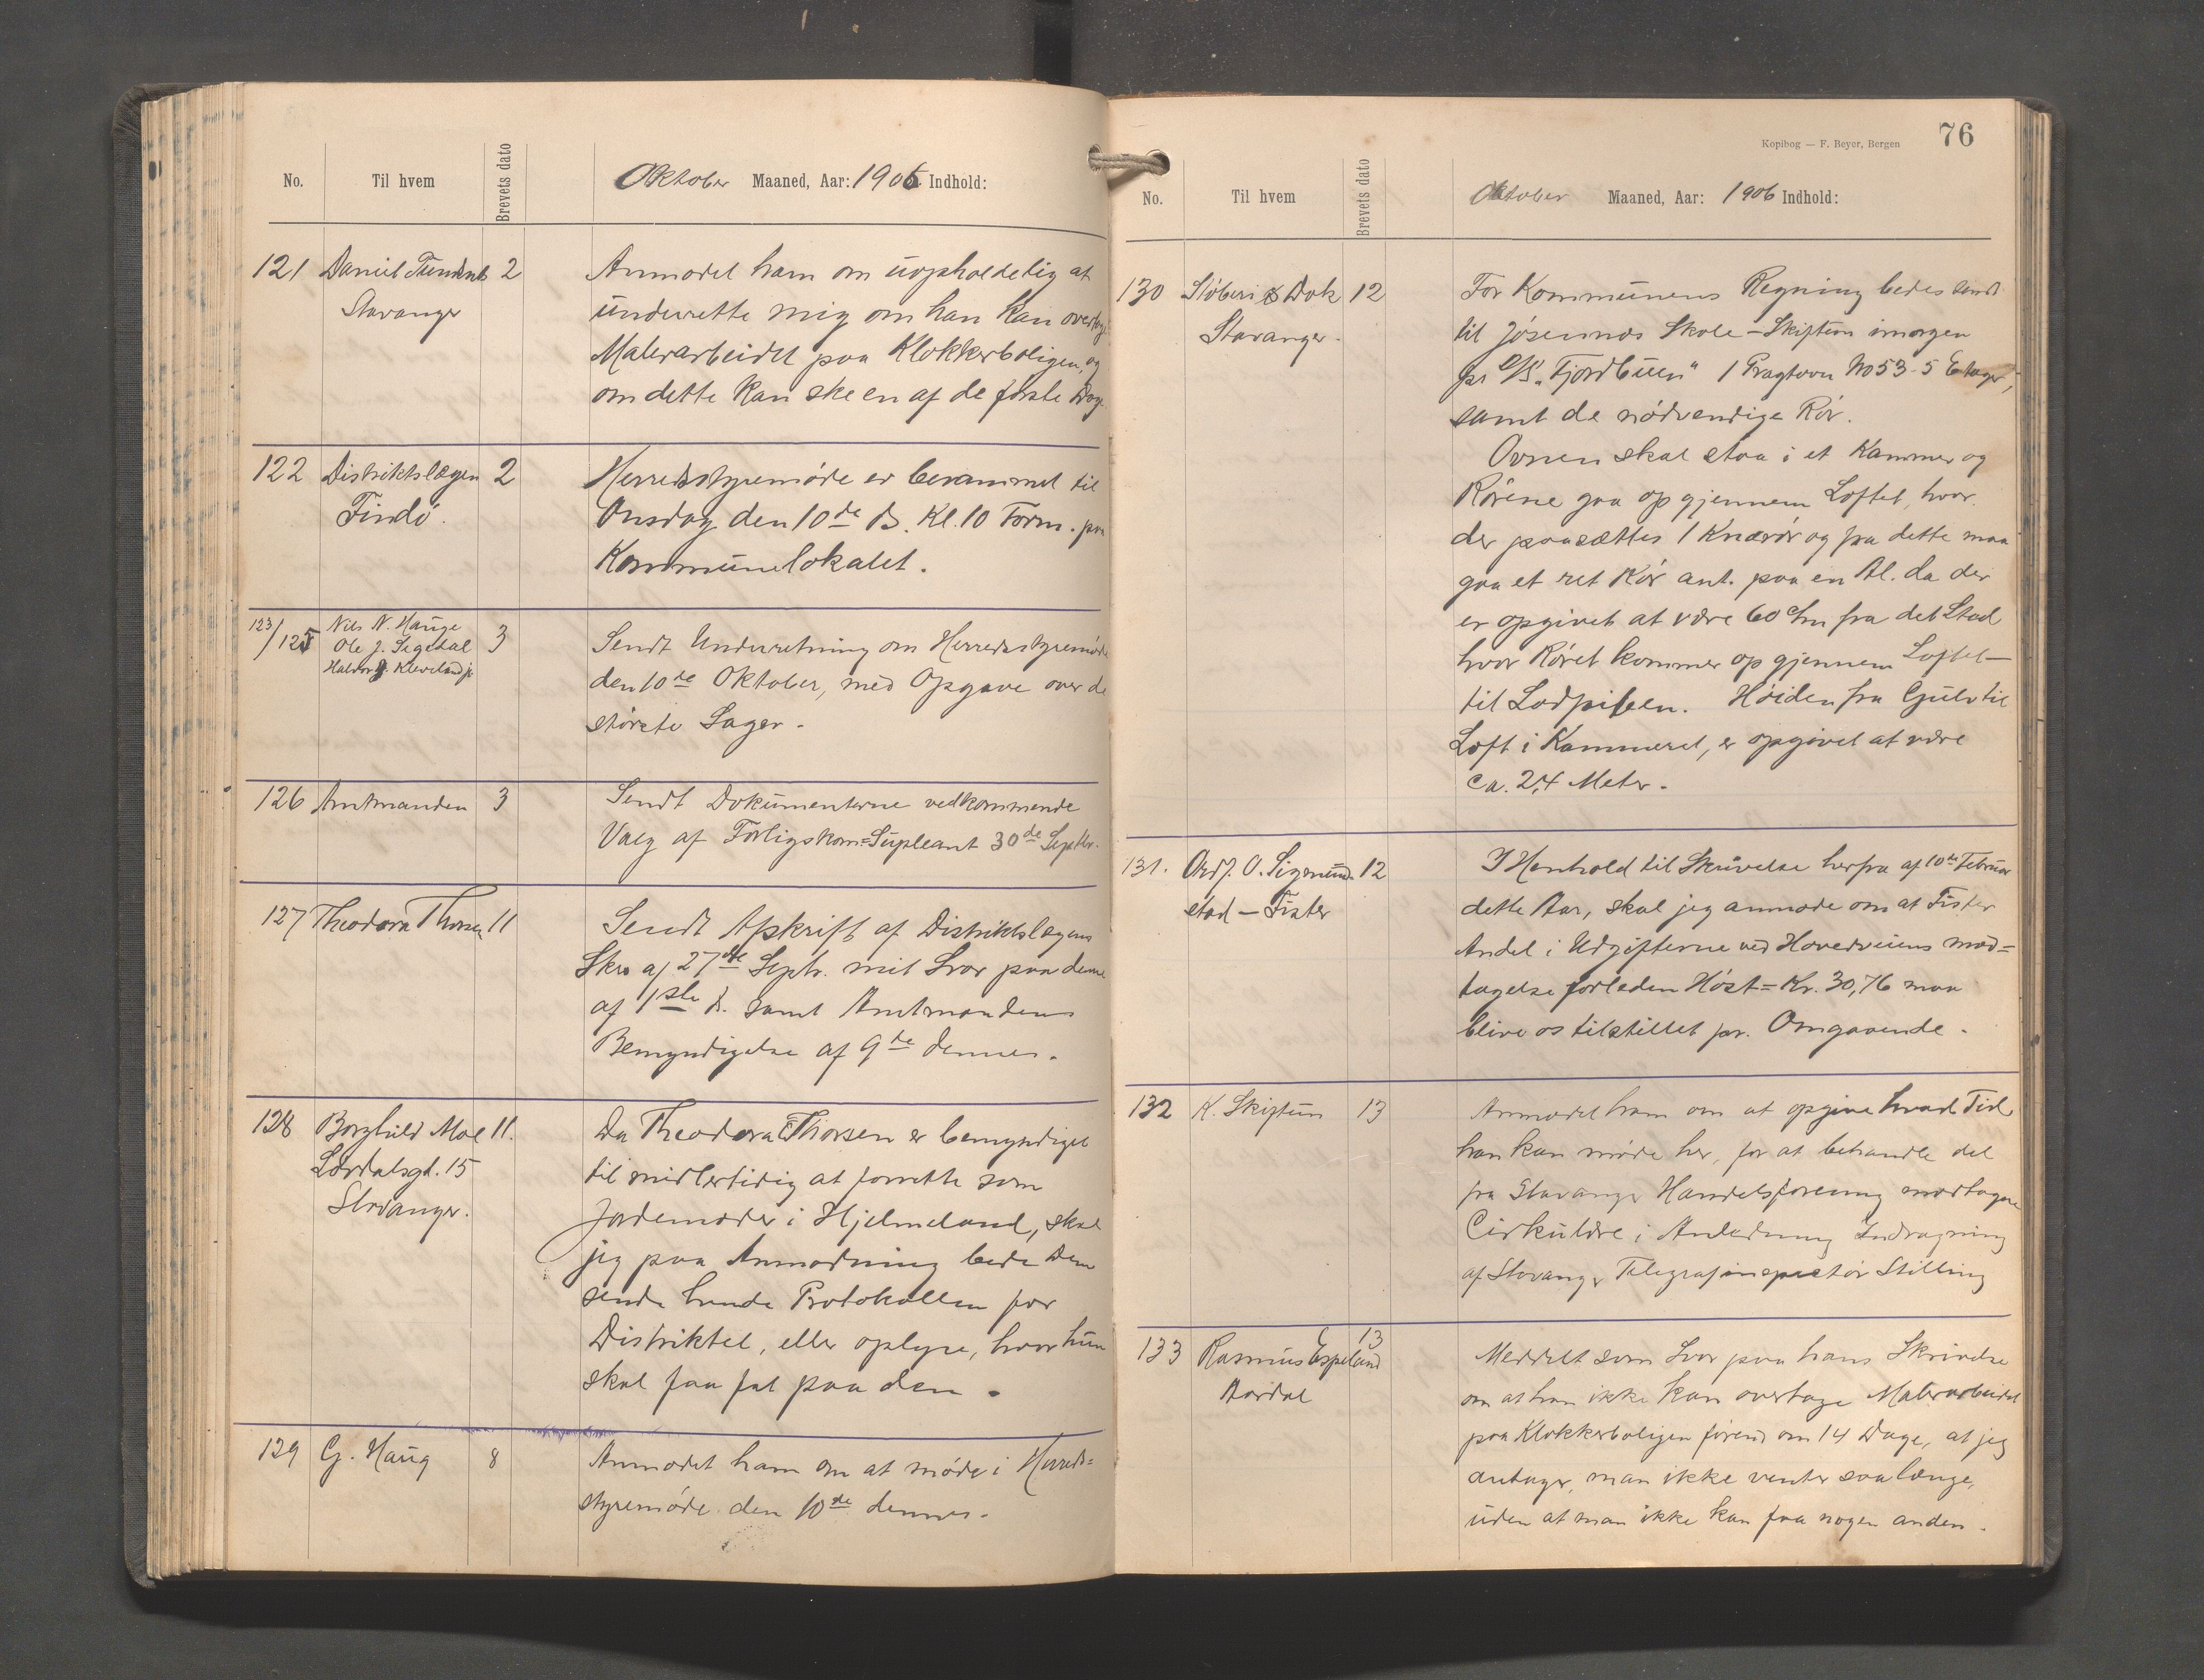 No. Til hvem Brevets dato Oktober Maaned, Aar: 1906 Indhold:
121 Daniel 2 Anmodet ham om uopholdelig at
Stavanger underrette mig om han kan overtage
Malerarbeidet paa Klokkerboligen, og
om dette kan ske en af de første Dage
122 Distriktslægen 2 Herredsstyremøde er berammet til
Findø. Onsdag den 10de ds. Kl. 10 Form. paa
Kommunelokalet.
123/125 Nils N. Hauge 3 Sendt Underretning om Herredsstyremøde
Ole J. Segedal den 10de Oktober, med Opgave over de
Halvor J. Kleveland jr. største Sager.
126 Amtmanden 3 Sendt Dokumenterne vedkommende
Valg af Forligskom=Supleant 30de Septbr.
127 Theodora Thorsen 11 Sendt Afskrift af Distriktslægens
Skr. af 27de Septr. mit Svar paa denne
af 1ste ds. samt Amtmandens
Bemyndigelse af 9de dennes.
128 Borghild Moe 11. Da Theodora Thorsen er bemyndiget
Lovdalsgd. 15 til midlertidig at forrette som
Stavanger. Jordemoder i Hjelmeland, skal
jeg paa Anmodning bede Dem
sende hende Protokollen for
Distriktet, eller oplyse, hvor hun
skal faa fat paa den.
129 G. Haug 8 Anmodet ham om at møde i Herreds=
styremøde den 10de dennes.
Kopibog — F. Beyer, Bergen 76
No. Til hvem Brevets dato Oktober Maaned, Aar: 1906 Indhold:
130 Støberi & Dok 12 For Kommunens Regning bedes sendt
Stavanger. til Jøsenes Skole – Skiftun imorgen
pr D/S „Fjordbuen" 1 Pragtovn No 53 - 5 Etager,
samt de nødvendige Rør.
Ovnen skal staa i et Kammer og
Rørene gaa op gjennem Loftet, hvor
der paasættes 1 Knærør og fra dette maa
gaa et ret Rør ant. paa en Al. da der
er opgivet at være 60 c/m fra det Sted
hvor Røret kommer op gjennem Loftet –
til Lodpiben. Høiden fra Gulv til
Loft i Kammeret, er opgivet at være
ca. 2,4 Meter.
131. Ordf. O. Sigmund- 12 I Henhold til Skrivelse herfra af 10de Februar
stad – Fister dette Aar, skal jeg anmode om at Fister
Andel i Udgifterne ved Hovedveiens mod=
tagelse forleden Høst = Kr. 30,76 maa
blive os tilstillet pr. Omgaaende.
132 K. Skiftun 13 Anmodet ham om at opgive hvad Tid
han kan møde her, for at behandle det
fra Stavanger Handelsforening modtagne
Cirkulære i Anledning Inddragning
af Stavanger Telegrafinspektør Stilling
133 Rasmus Espeland 13 Meddelt som Svar paa hans Skrivelse
Aardal om at han ikke kan overtage Malerarbeidet
paa Klokkerboligen førend om 14 Dage, at jeg
antager, man ikke venter saa længe,
uden at man ikke kan faa nogen anden.